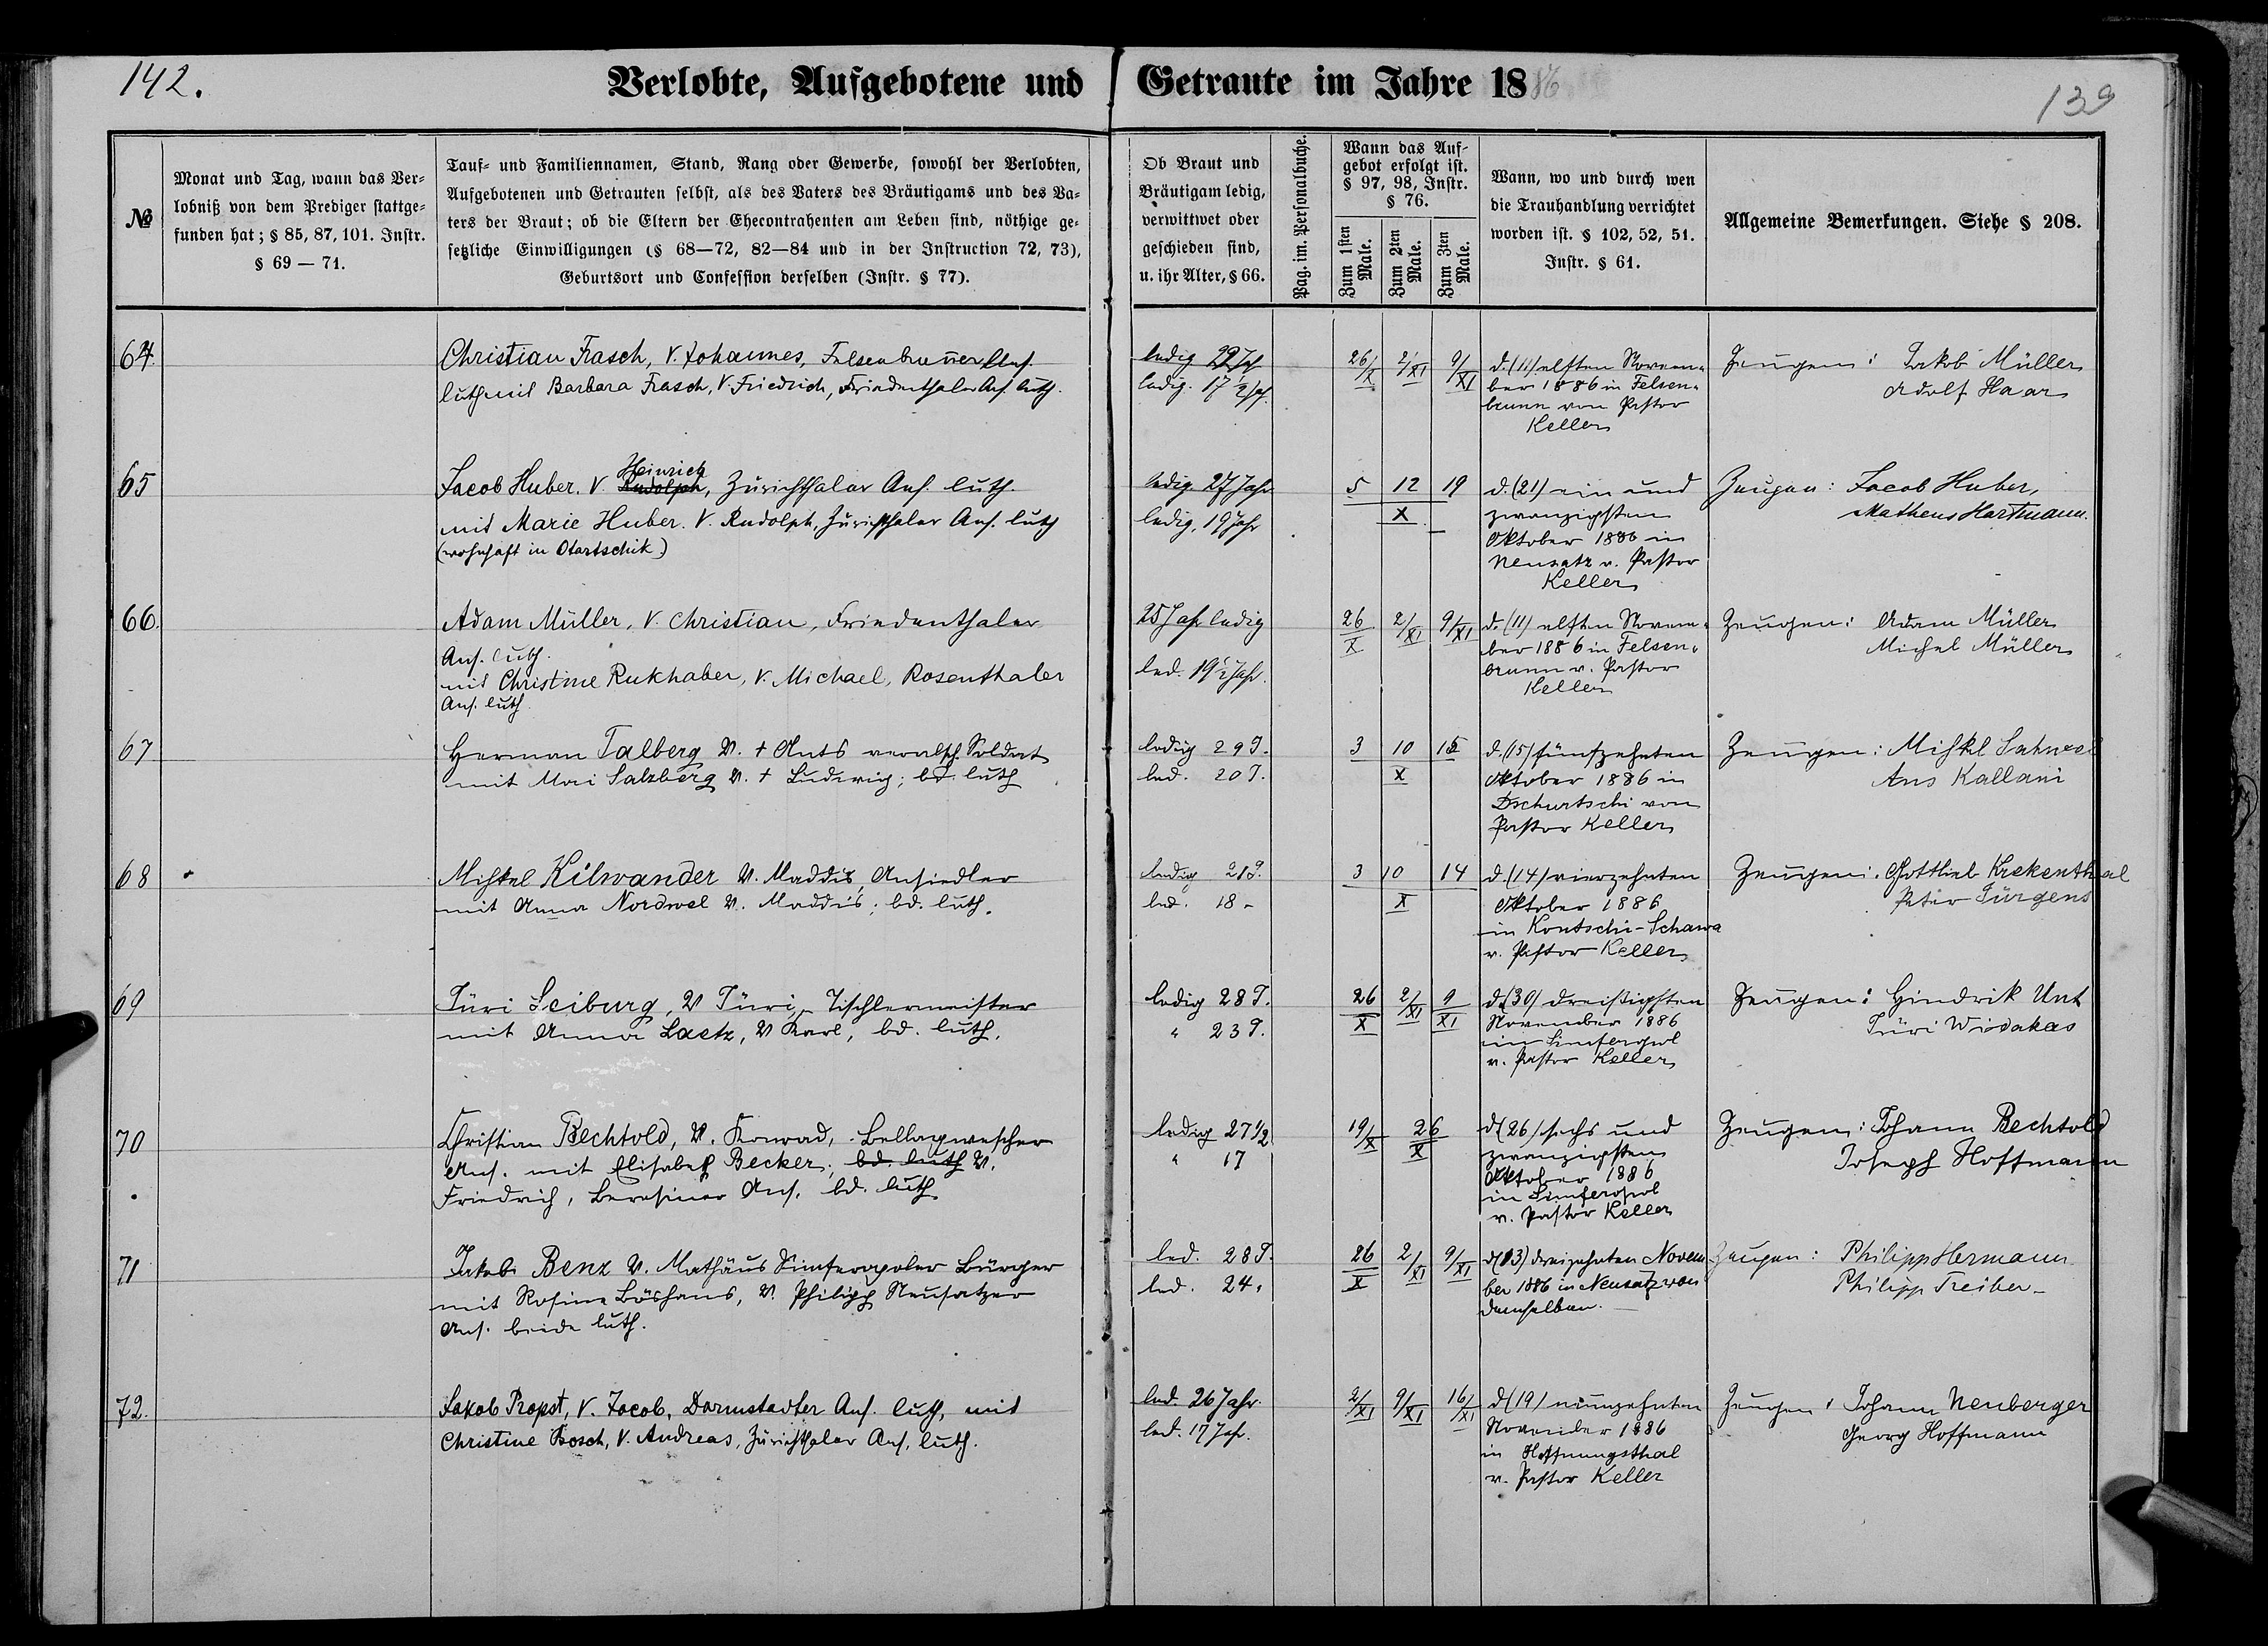 142.
Verlobte, Aufgebotene und Getraute im Jahre 1886
139
№
Monat und Tag, wann das Ver-
lobniß von dem Prediger stattge-
funden hat; § 85, 87, 101. Instr.
§ 69 — 71.
Tauf- und Familiennamen, Stand, Rang oder Gewerbe, sowohl der Verlobten,
Aufgebotenen und Getrauten selbst, als des Vaters des Bräutigams und des Va-
ters der Braut; ob die Eltern der Ehecontrahenten am Leben sind, nöthige ge-
setzliche Einwilligungen (§ 68—72, 82—84 und in der Instruction 72, 73),
Geburtsort und Confession derselben (Instr. § 77).
Ob Braut und
Bräutigam ledig,
verwittwet oder
geschieden sind,
u. ihr Alter, § 66.
Pag. im. Personalbuche.
Wann das Auf-
gebot erfolgt ist.
§ 97, 98, Instr.
§ 76.
Zum 1sten
Male.
Zum 2ten
Male.
Zum 3ten
Male.
Wann, wo und durch wen
die Trauhandlung verrichtet
worden ist. § 102, 52, 51.
Instr. § 61.
Allgemeine Bemerkungen. Siehe § 208.
64.
Christian Frasch, V. Johannes, Felsenbrunner Ans.
luth mit Barbara Frasch, V. Friedrich, Friedenthaler Ans. luth.
ledig 22 Jah
ledig. 17 1/2 Jah.
26/X 2/XI 9/XI
d. (11) elften Novem-
ber 1886 in Felsen-
brunn von Pastor
Keller
Zeugen: Jakob Müller
Adolf Haar
65
Heinrich
Jacob Huber. V. Rudolph, Zürichthaler Ans. luth.
mit Marie Huber. V. Rudolph, Zürichthaler Ans. luth
(wohnhaft in Otartschik)
ledig 27 Jahr
ledig. 19 Jahr
5 12 19
X
d. (21) ein und
zwanzigsten
Oktober 1886 in
Neusatz v. Pastor
Keller
Zeugen: Jacob Huber,
Matheus Hartmann.
66.
Adam Müller, V. Christian, Friedenthaler
Ans. luth.
mit Christine Rukhaber, V. Michael, Rosenthaler
Ans. luth
25 Jahr ledig
led. 19 1/2 Jahr.
26/X 2/XI 9/XI
d. (11) elften Novem-
ber 1886 in Felsen-
brunn v. Pastor
Keller
Zeugen: Adam Müller
Michel Müller
67
Herman Talberg V. † Ants verabsch. Soldat
mit Mai Salzberg V. † Ludwig; bd. luth
ledig 29 J.
led. 20 J.
3 10 15
X
d. (15) fünfzehnten
Oktober 1886 in
Dschurtschi von
Pastor Keller
Zeugen: Mihkel
Ans Kallani
68
Mihkel Kilwander V. Maddis, Ansiedler
mit Anna Nordwel V. Maddis; bd. luth.
ledig 21 J.
led. 18 -
3 10 14
X
d. (14) vierzehnten
Oktober 1886
in Kontschi-Schawa
v. Pastor Keller
Zeugen: Gottlieb Krekenthal
Peter Jürgens
69
Jüri Seiburg, V Jüri, Tischlermeister
mit Anna Laetz, V Karl, bd. luth.
ledig 28 J.
" 23 J.
26/X 2/XI 9/XI
d. (30) dreißigsten
November 1886
in Simferopol
v. Pastor Keller
Zeugen: Hindrik Unt
Jüri Wiodakas
70
Christian Bechtold, V. Konrad, Bellagwescher
Ans. mit Elisabeth Becker; bd. luth V.
Friedrich, Beresiner Ans. bd. luth
ledig 27 1/2
" 17
19/X 26/X
d (26) sechs und
zwanzigsten
Oktober 1886
in Simferopol
v. Pastor Keller
Zeugen: Johann Bechtold
Joseph Hoffmann
71
Jakob Benz V. Mathäus Simferopoler Bürger
mit Rosine Böshans, V. Philipp Neusatzer
Ans. beide luth.
led. 28 J.
led. 24 "
26/X 2/XI 9/XI
d (13) dreizehnten Novem
ber 1886 in Neusatz von
demselben.
Zeugen: Philipp Hermann
Philipp Treiber
72.
Jakob Propst, V. Jacob, Darmstadter Ans. luth, mit
Christine Bosch, V. Andreas, Zürichthaler Ans. luth.
led. 26 Jahr.
led. 17 Jahr.
2/XI 9/XI 16/XI
d (19) neunzehnten
November 1886
in Hoffnungsthal
v. Pastor Keller
Zeugen: Johann Neuberger
Georg Hoffmann